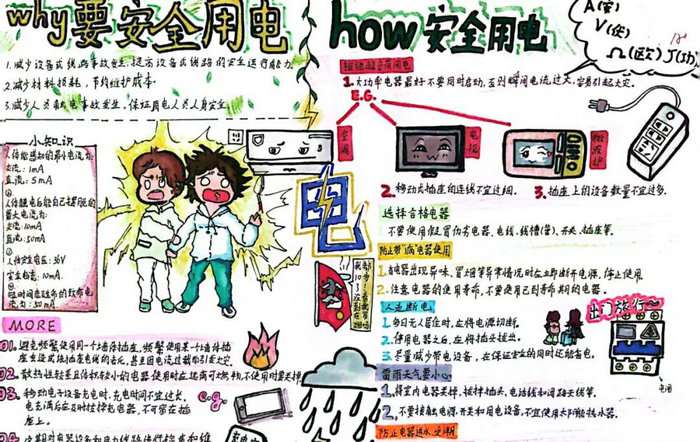 why要安全用电
1.减少设备或线路事故发生,提高设备或线路的安全运行能力.
2.减少材料损耗,节约维护成本.
3.减少人员触电事故发生,保证用电人员人身安全.
小知识
人体能感知的最小电流为:
交流:1mA
直流:5mA
人体触电后能自己摆脱的
最大电流为:
交流:10mA
直流:50mA
人体安全电压:36V
安全电流:10mA.
短时间危及生命的致命电
流为:50mA
电
MORE
01.避免频繁使用同一个墙体插座,频繁使用某一墙体插
how安全用电
A(安)
V(伏)
Ω(欧) J(焦)
1.大功率电器最好不要同时启动,否则瞬间电流过大,容易引起火灾.
E.G.
空调
电视
微波炉
2.移动式插座的连线不宜过细.
3.插座上的设备数量不宜过多.
选择合格电器
不要使用假冒伪劣电器、电线、线槽(管)、开关、插座等.
防止带病电器使用
1.电器出现异味、冒烟等异常情况时应立即断开电源,停止使用
2.注意电器的使用寿命,不要使用已到寿命期的电器.
人走断电
1.每日无人居住时,应将电源切断.
2.停用电器之后,应将插头拔出.
3.尽量减少带电设备,在保证安全的同时还能省电.
出门旅行~
雷雨天气要小心
1.将室内电器关掉,拔掉插头、电话线和闭路天线等.
2.不要接触电源开关和用电设备,不宜使用太阳能热水器.
防止电器进水受潮
03.移动电子设备充电时,充电时间不宜过长,
电充满后应及时拔掉电器,不可留在插
座上.
e.g